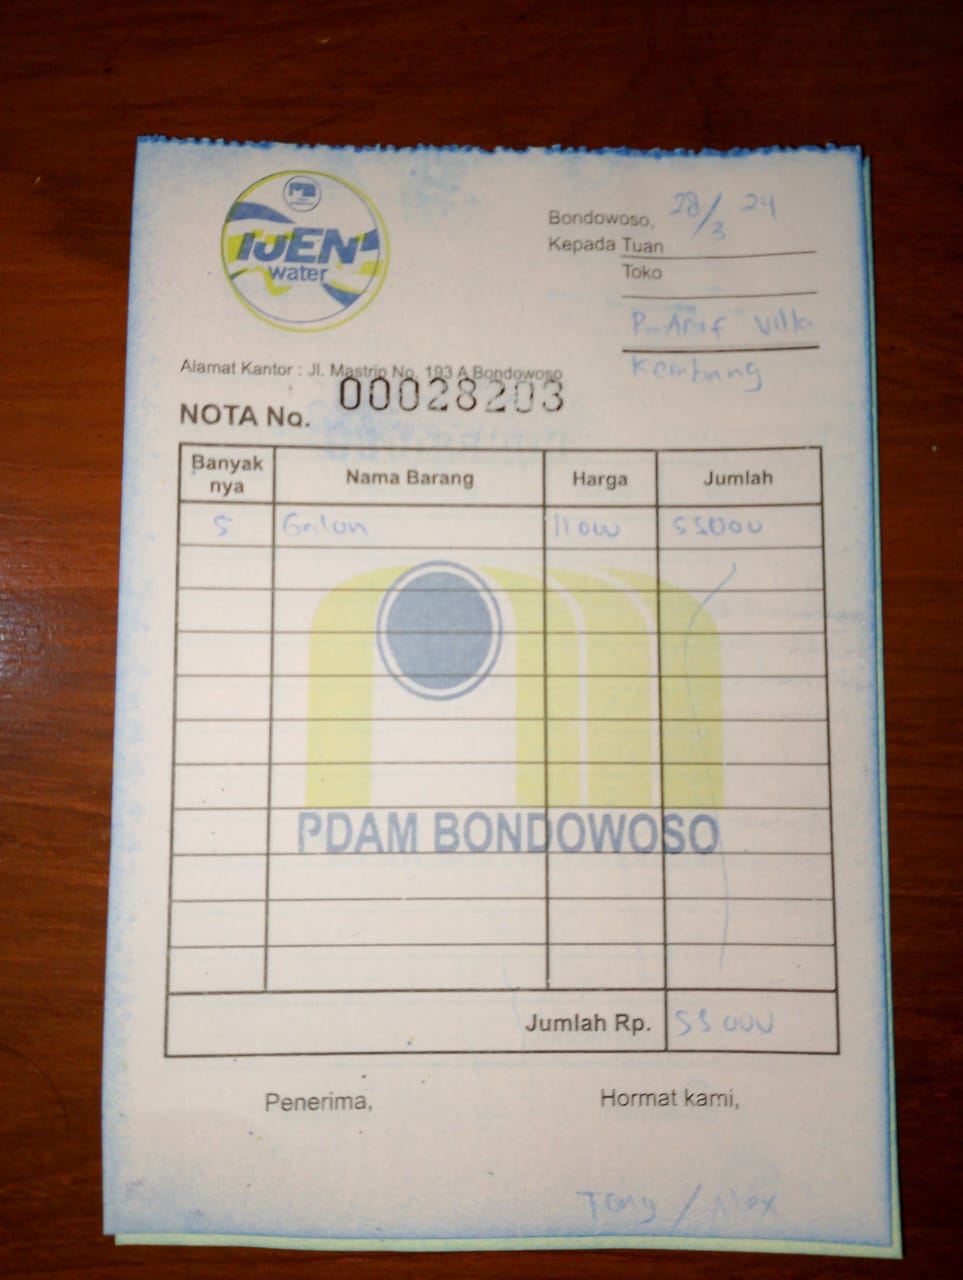 IJEN
water
Bondowoso, 28/3 24
Kepada Tuan
Toko
P. Arif Villa
Kembang
Alamat Kantor : Jl. Mastrip No. 193 A Bondowoso
NOTA No. 00028203
Banyak nya Nama Barang Harga Jumlah
5 Galon 11000 55000
PDAM BONDOWOSO
Jumlah Rp. 55000
Penerima, Hormat kami,
Tony / Alex